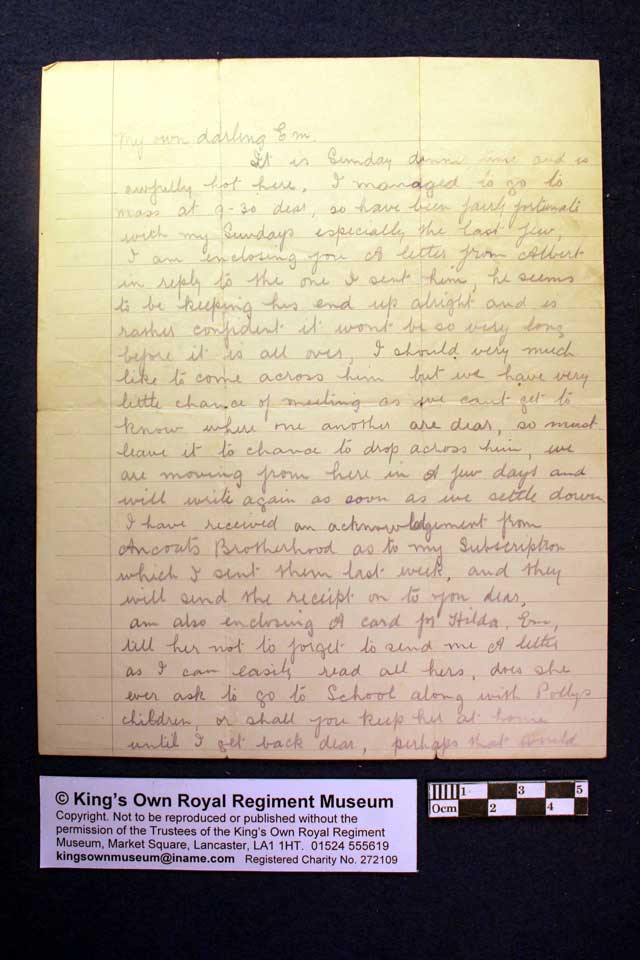 My own darling Em.
It is Sunday dinner time and is
awfully hot here. I managed to go to
mass at 9-30 dear, so have been fairly fortunate
with my Sundays especially the last few,
I am enclosing you A letter from Albert
in reply to the one I sent him, he seems
to be keeping his end up alright and is
rather confident it wont be so very long
before it is all over, I should very much
like to come across him but we have very
little chance of meeting as we cant get to
know where one another are dear, so must
leave it to chance to drop across him, we
are moving from here in A few days and
will write again as soon as we settle down
I have received an acknowledgement from
Ancoats Brotherhood as to my Subscription
which I sent them last week, and they
will send the receipt on to you dear,
am also enclosing A card for Hilda, Em,
till her not to forget to send me A letter
as I can easily read all hers, does she
ever ask to go to School along with Pollys
children, or shall you keep her at home
until I get back dear, perhaps that would
© King's Own Royal Regiment Museum
Copyright. Not to be reproduced or published without the
permission of the Trustees of the King's Own Royal Regiment
Museum, Market Square, Lancaster, LA1 1HT. 01524 555619
kingsownmuseum@iname.com Registered Charity No. 272109
1 3 5
0cm 2 4